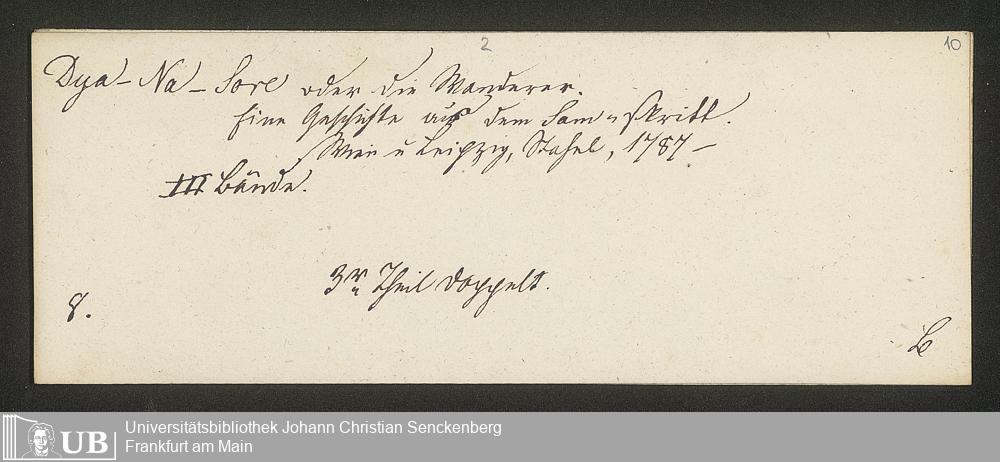 2
10
Dya-Na-Sore oder die Wanderer.
Eine Geschichte aus dem Sam=skritt.
Wien u Leipzig, Stahel, 1787-
III Bände.
3r Theil doppelt.
8.
UB
Universitätsbibliothek Johann Christian Senckenberg
Frankfurt am Main